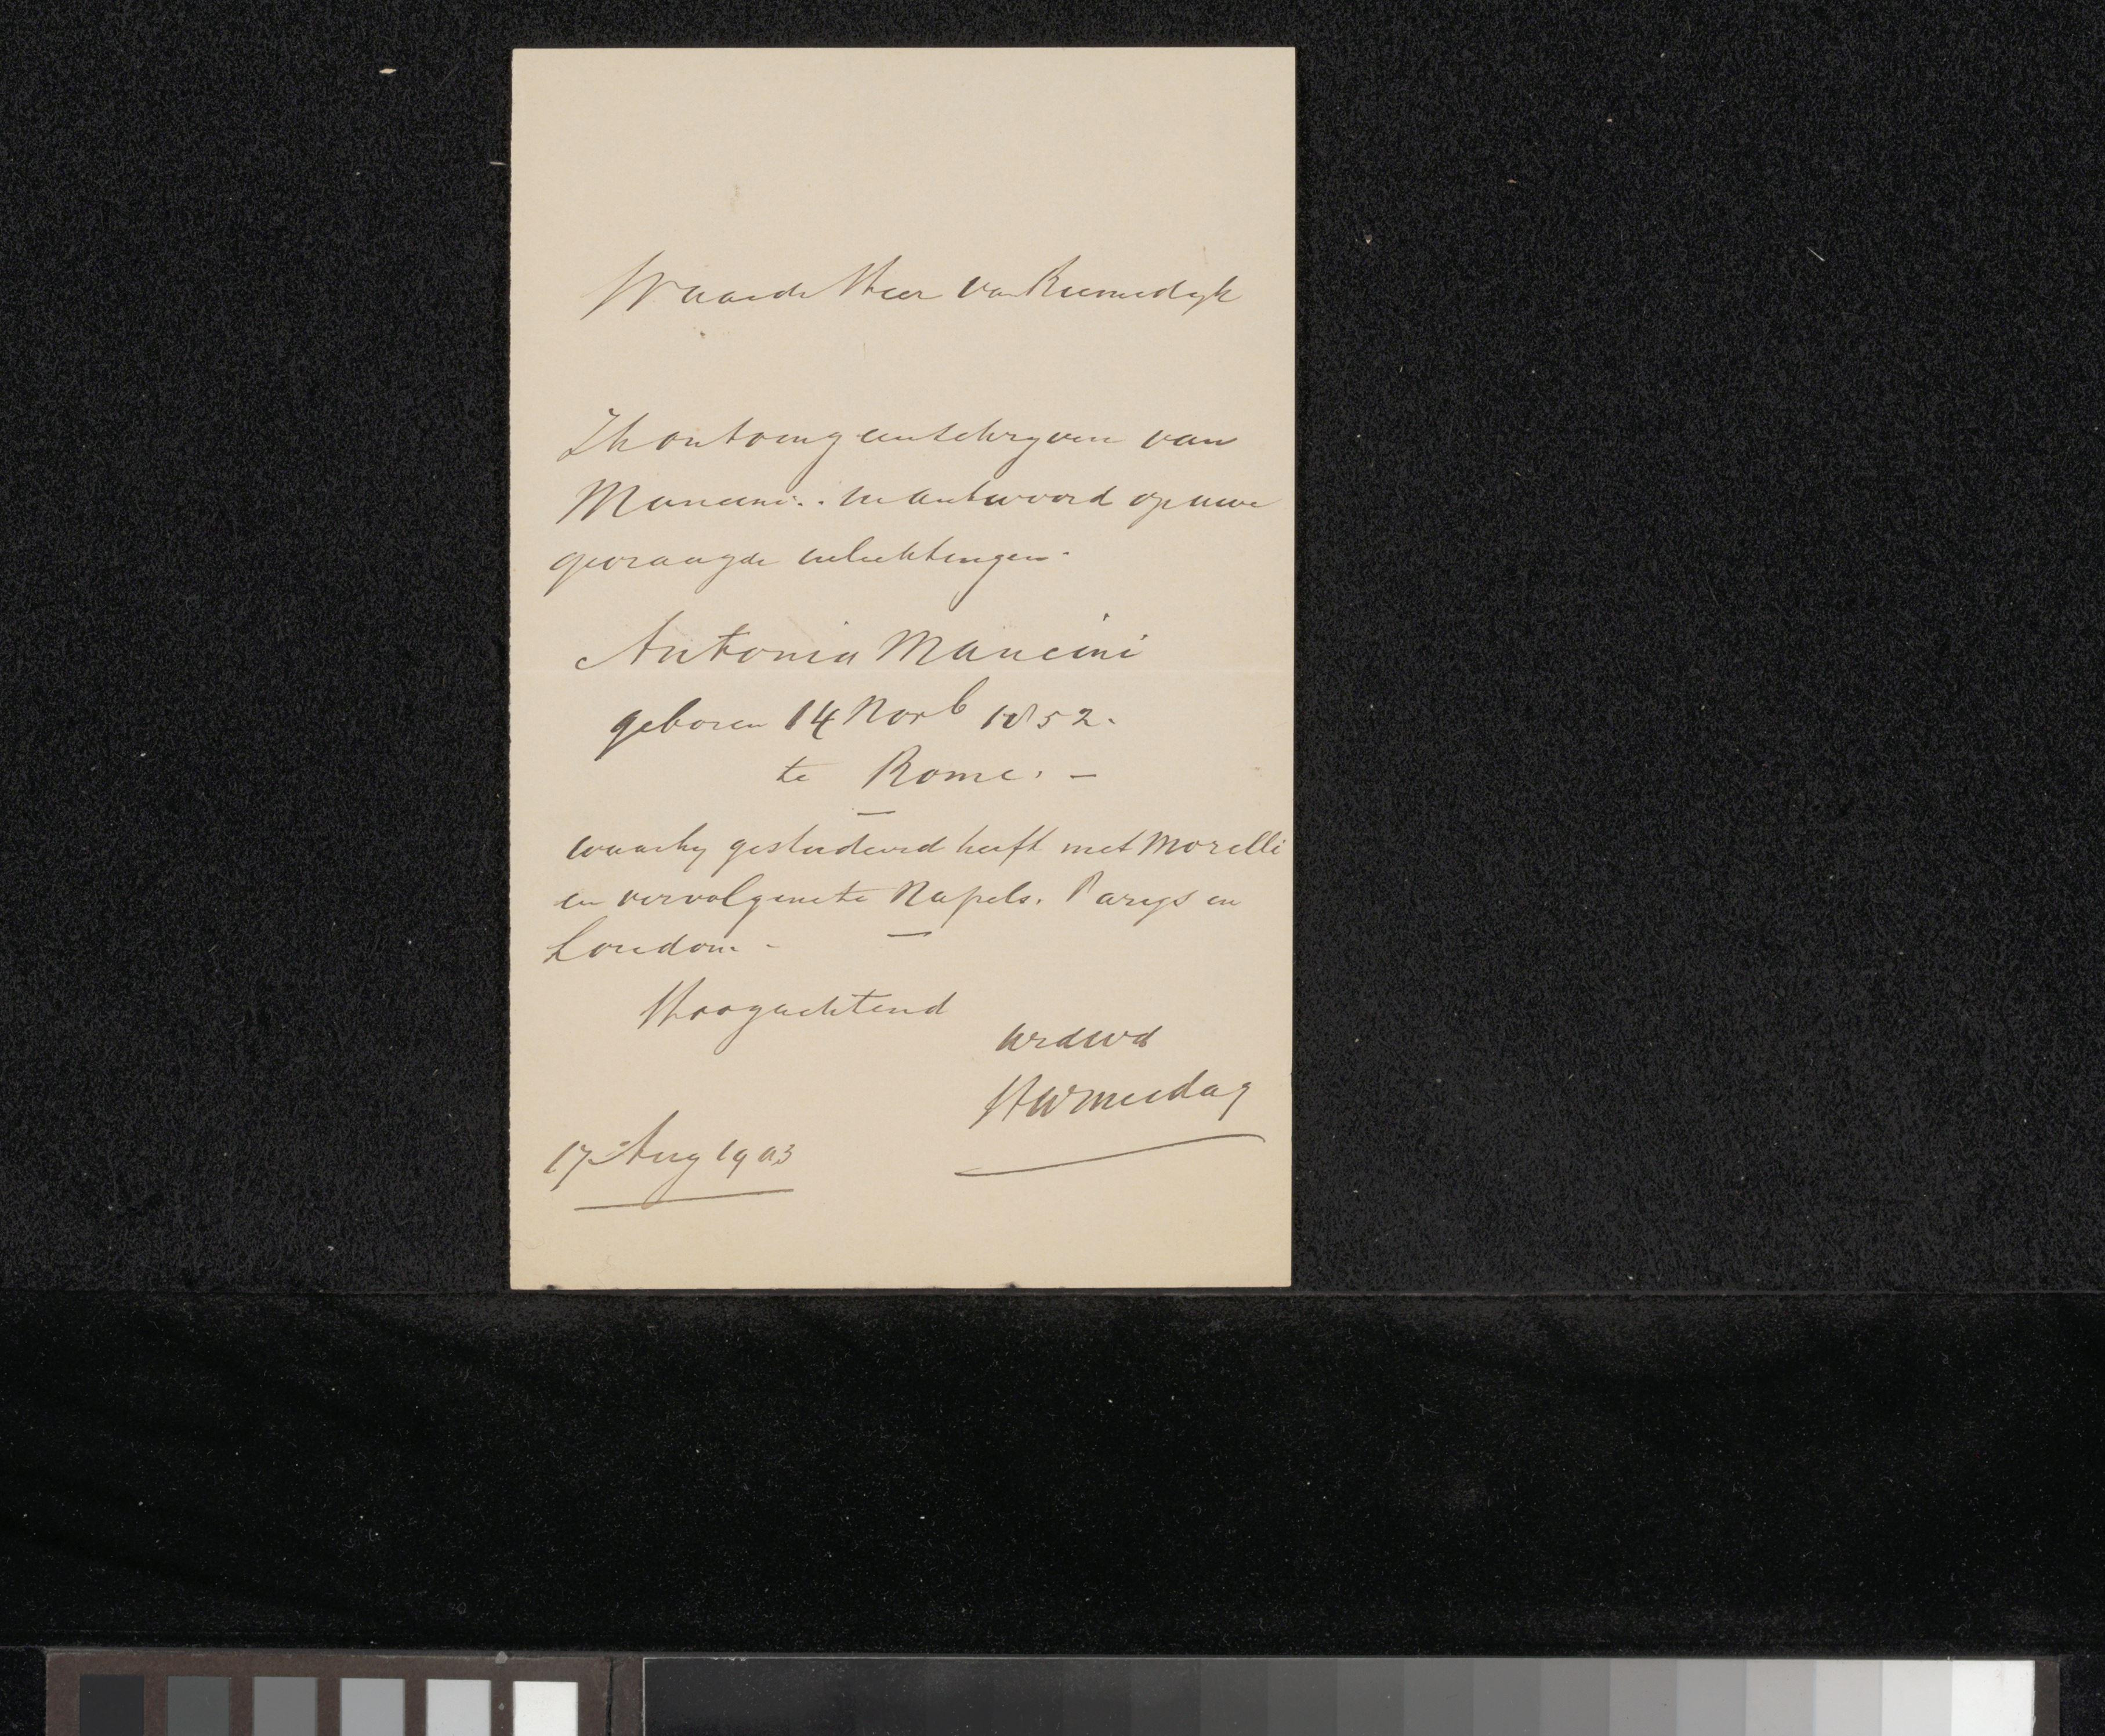 Waarde Heer van Riemsdyk
Ik ontving een schryven van
Mancini.. in antwoord op uwe
gevraagde inlichtingen.
Antonio Mancini
geboren 14 Novb 1852.
te Rome. —
waar hy gestudeerd heeft met Morelli
en vervolgens te Napels. Parys en
Londen -
Hoogachtend
uwdwd
HWMesdag
17 Aug 1903